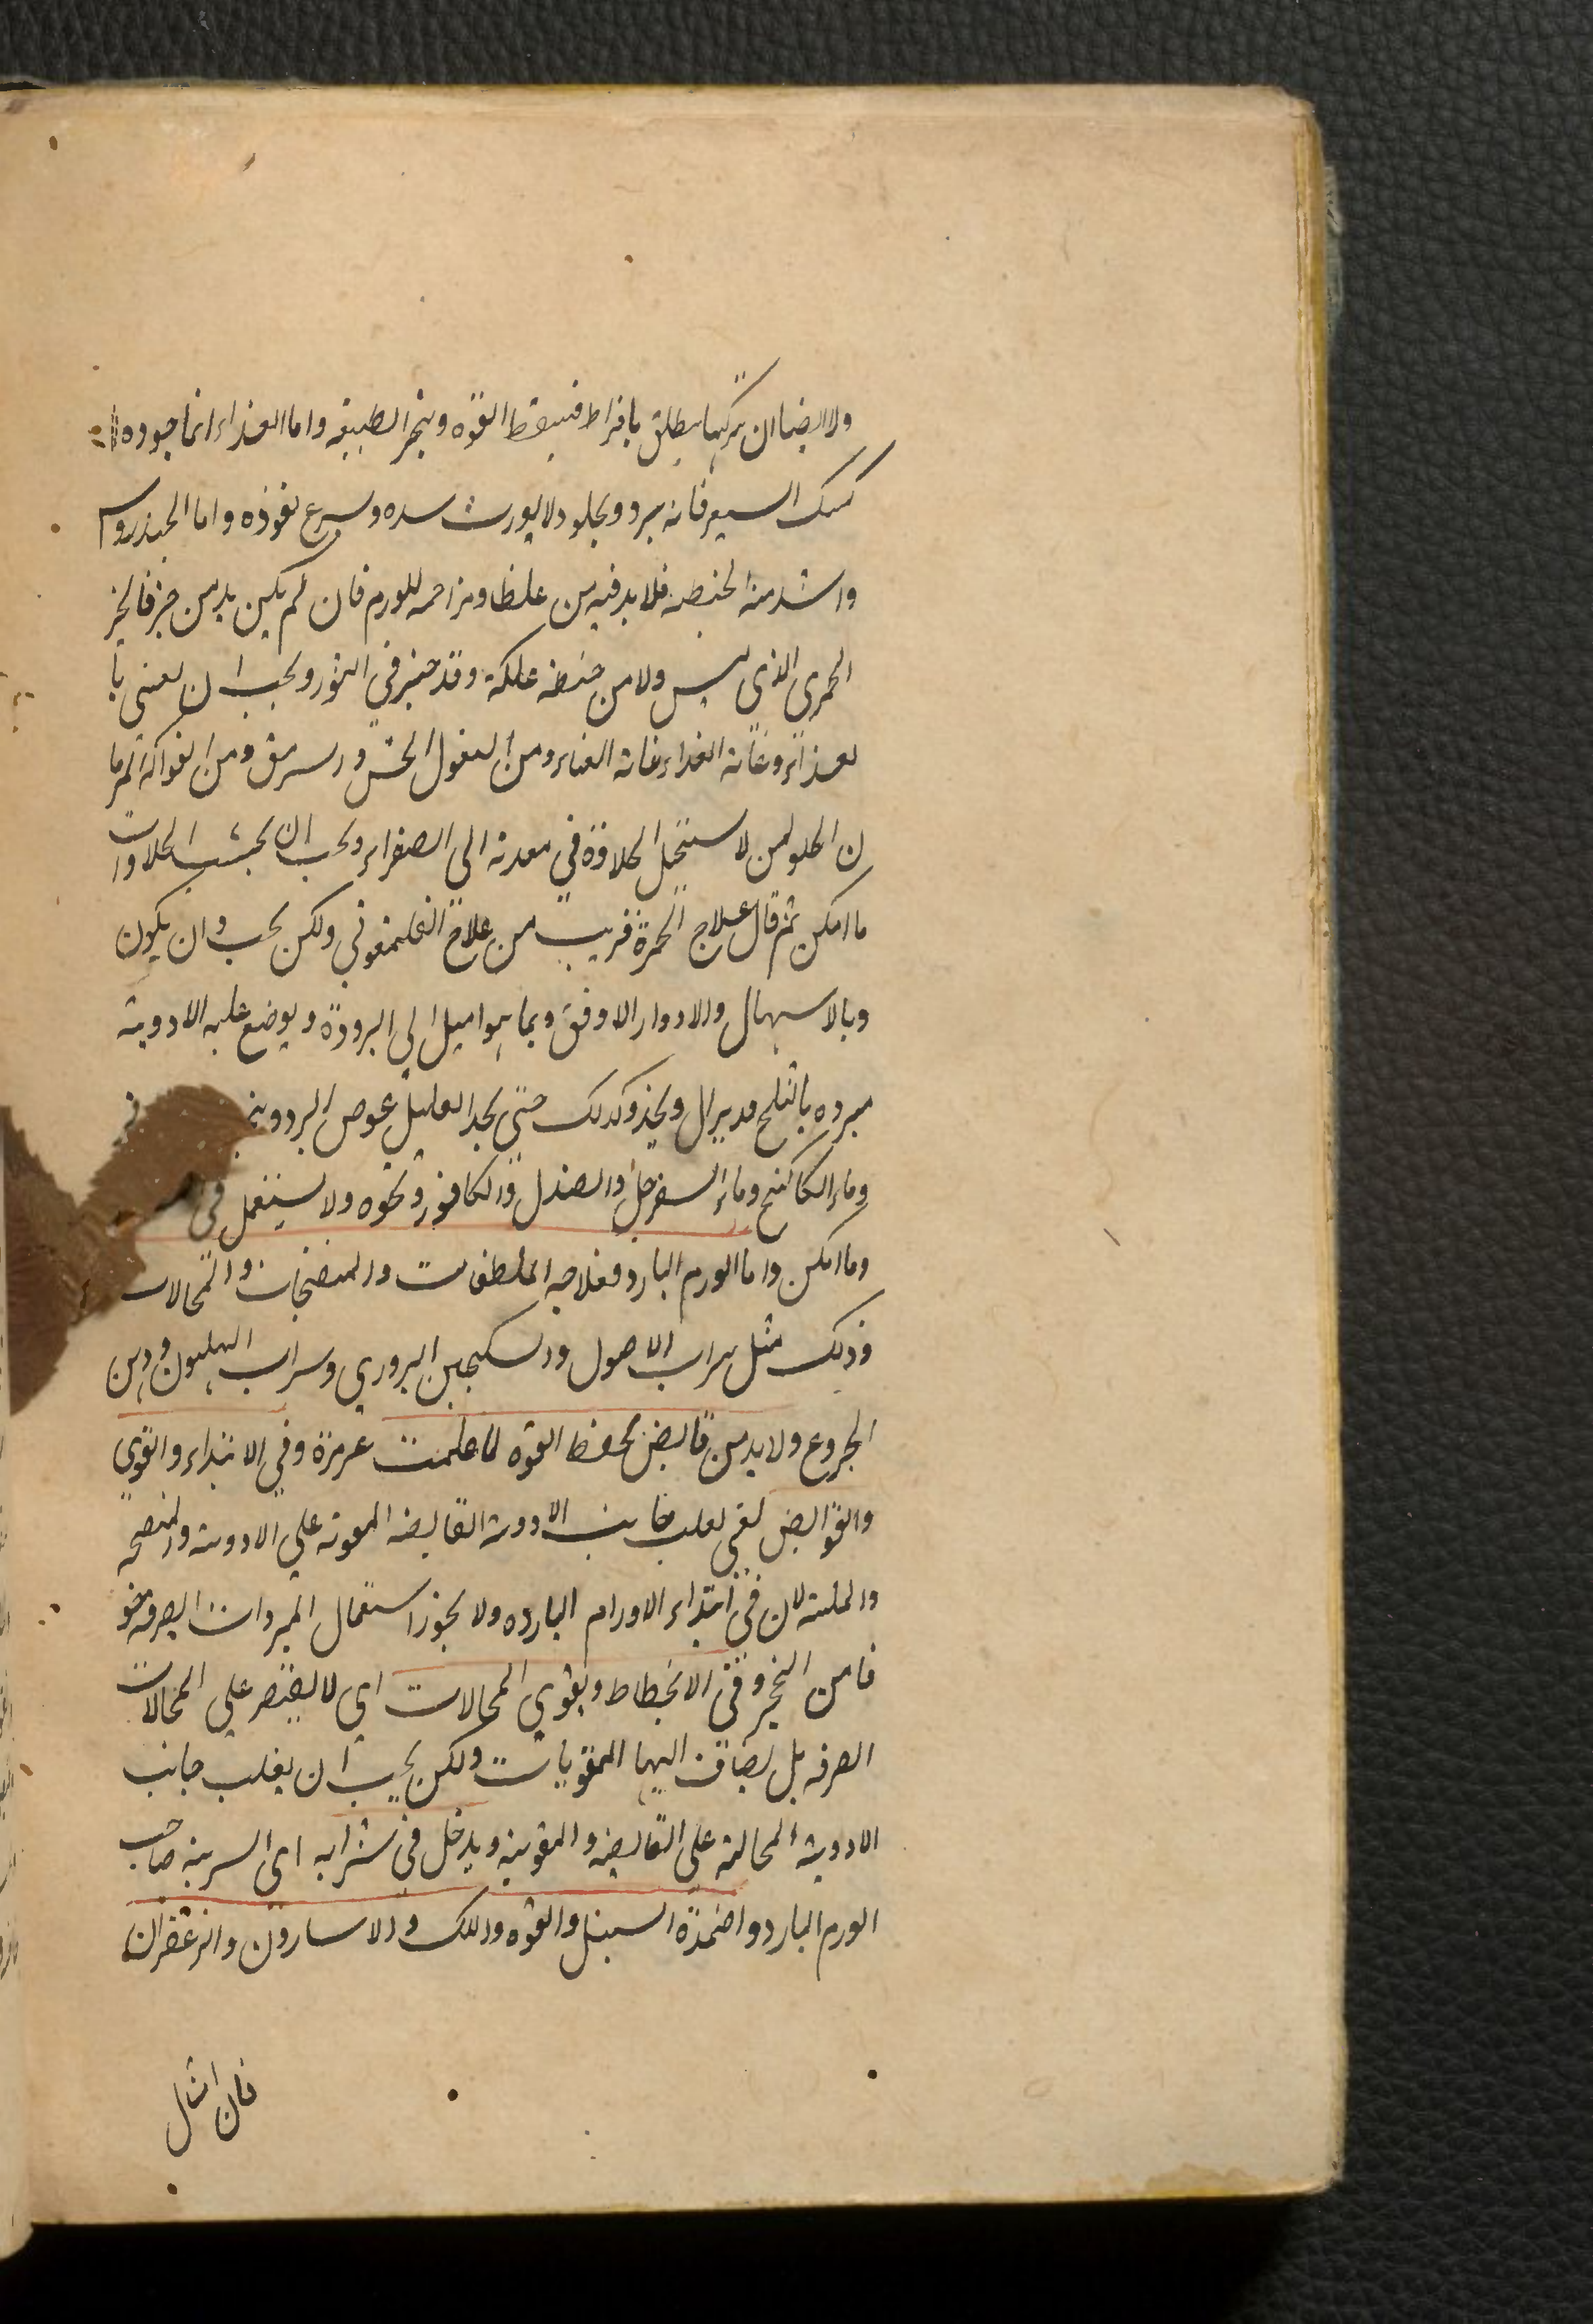 ولا ايضا ان يتركها يطلق بافراط فيسقط القوه وينجر الطبيعه واما الغذاء انما جوده
كشك الشعير فانه يبرد ويجلو ولا يورث سده وسرع نفوذه واما الخندروس
واشد منه الحنطه فلا بد فيه من غلظ ومزاحمه للورم فان لم يكن بد من خبز فالخبز
الخمرى الذى ليس ولا من حنطه علكة وقد خبز فى التنور ويجب ان يعنى با
لغذاء وغاية الغذاء غاية العناء ومن البقول الخس و السرمق ومن الفواكه الرما
ن الحلو لمن لا يستحيل الحلاوة في معدته الى الصفراء ويجب ان يجتنب الحلاوات
ما امكن ثم قال علاج الحمرة قريب من علاج الفلغمونى ولكن يجب وان يكون
وبالاسهال والادوار الاوفق وبما هو اميل الى البرودة ويوضع عليه الادوية
مبرده بالثلج ويجد وكذلك حتى يجد العليل غوص البرد
وماء الكاكنج وماء السفرجل والصندل والكافور ونحوه ولا يستعمل فى
وما امكن واما الورم البارد فعلاجه الملطفات والمنضجات والمحللات
وذلك مثل شراب الاصول والسكنجبين البزوري وشراب الهليون ودهن
الجروع ولا بد من قابض يحفظ القوه لما علمت غير مرة وفى الابتداء والقوى
والقوابض يعنى يغلب جانب الادوية القابضه المقوية على الادوية والمنضجه
والملينه لان فى ابتداء الاورام البارده ولا يجوز استعمال المبردات الصرفه خو
فا من التحجر وفى الانحطاط ويقوي المحللات اي لا يقتصر على المحللات
الصرفه بل يضاف اليها المقويات ولكن يجب ان يغلب جانب
الادوية المحللة على القابضه والمقوية ويدخل فى شرابه اى اشربة صاحب
الورم البارد واضمدة السنبل والقوه واللك والاسارون والزعفران
فان انثال